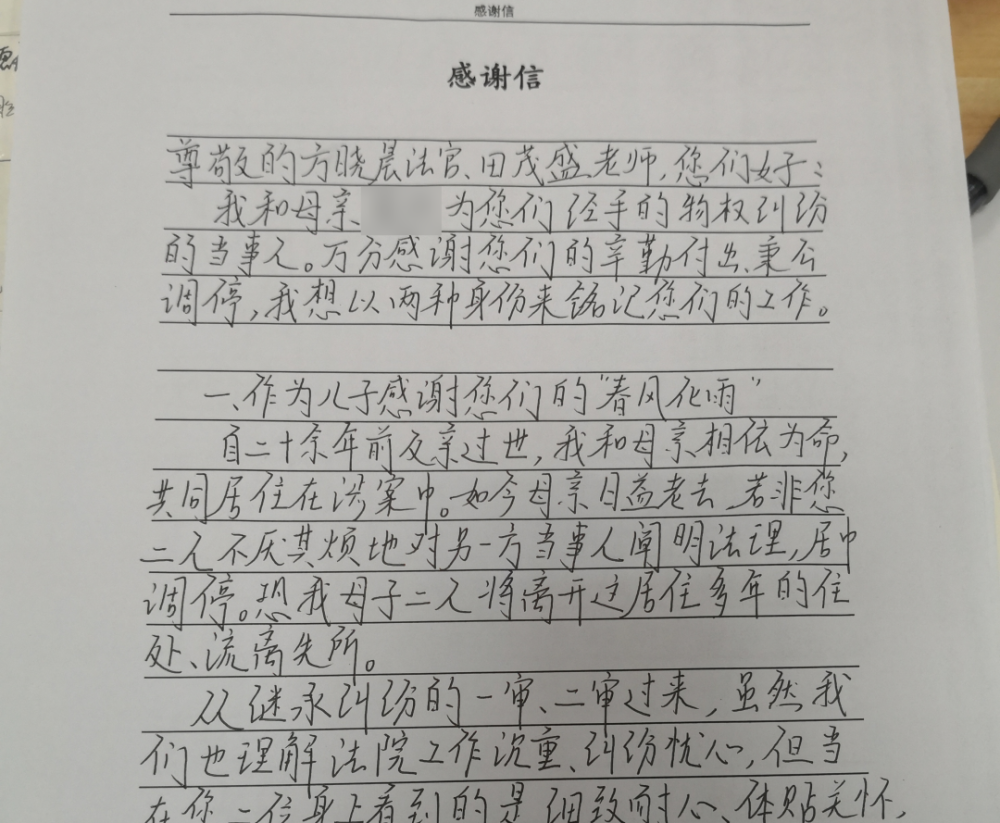 感谢信
感谢信
尊敬的方晓晨法官、田茂盛老师,您们好:
我和母亲 为您们经手的物权纠纷
的当事人。万分感谢您们的辛勤付出、秉公
调停,我想以两种身份来铭记您们的工作。
一、作为儿子感谢您们的“春风化雨”
自二十余年前父亲过世,我和母亲相依为命,
共同居住在涉案中。如今母亲日益老去,若非您
二人不厌其烦地对另一方当事人阐明法理,居中
调停。恐我母子二人将离开这居住多年的住
处、流离失所。
从继承纠纷的一审、二审过来,虽然我
们也理解法院工作沉重、纠纷忧心,但当
在您二位身上看到的是细致耐心、体贴关怀,